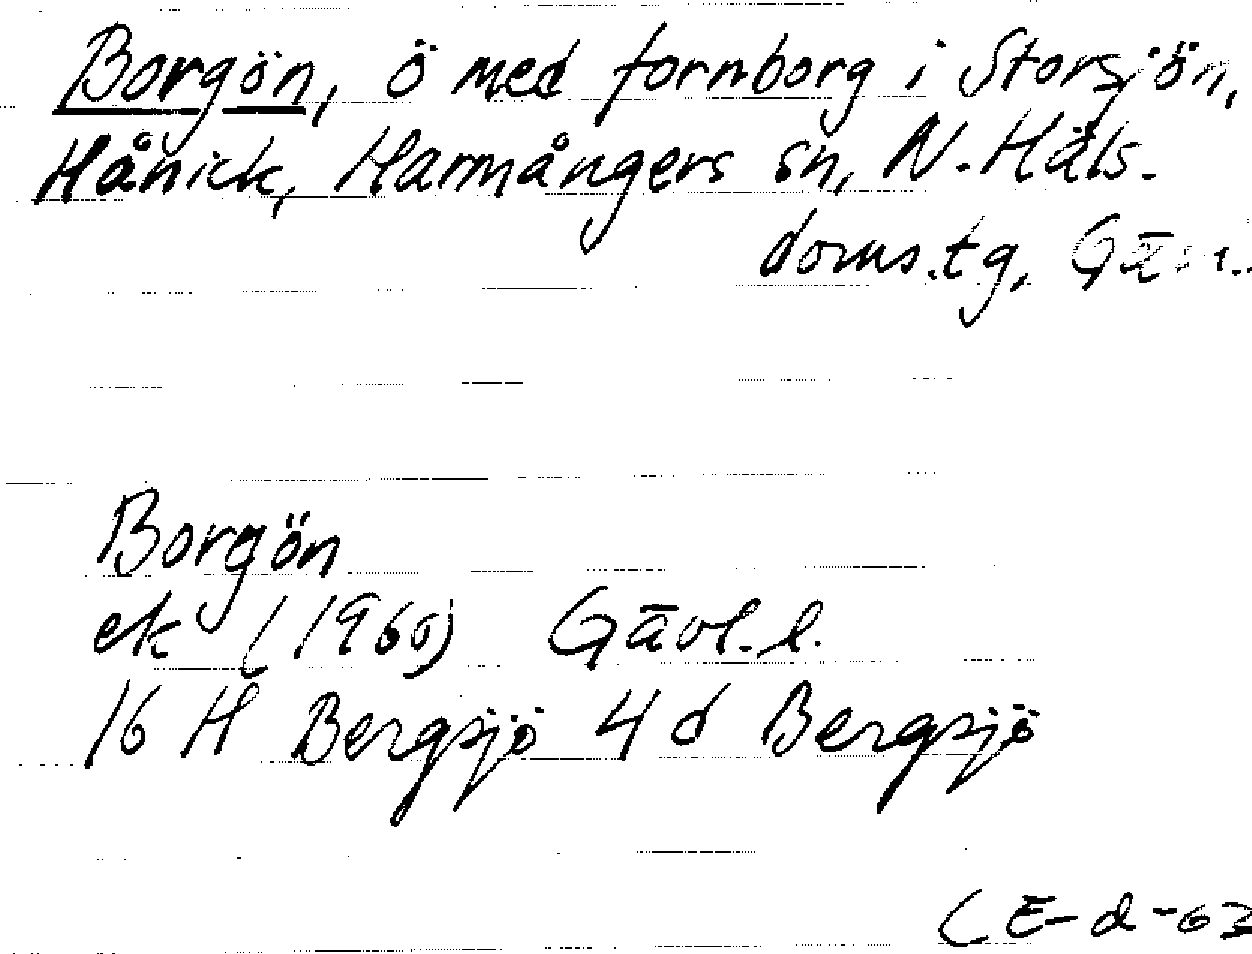 Borgön, ö med fornborg i Storsjön,
Hånick, Harmångers sn, N. Häls.
doms.tg,
Borgön
ek (1960) Gävl. l.
16 H Bergsjö 4 d Bergsjö